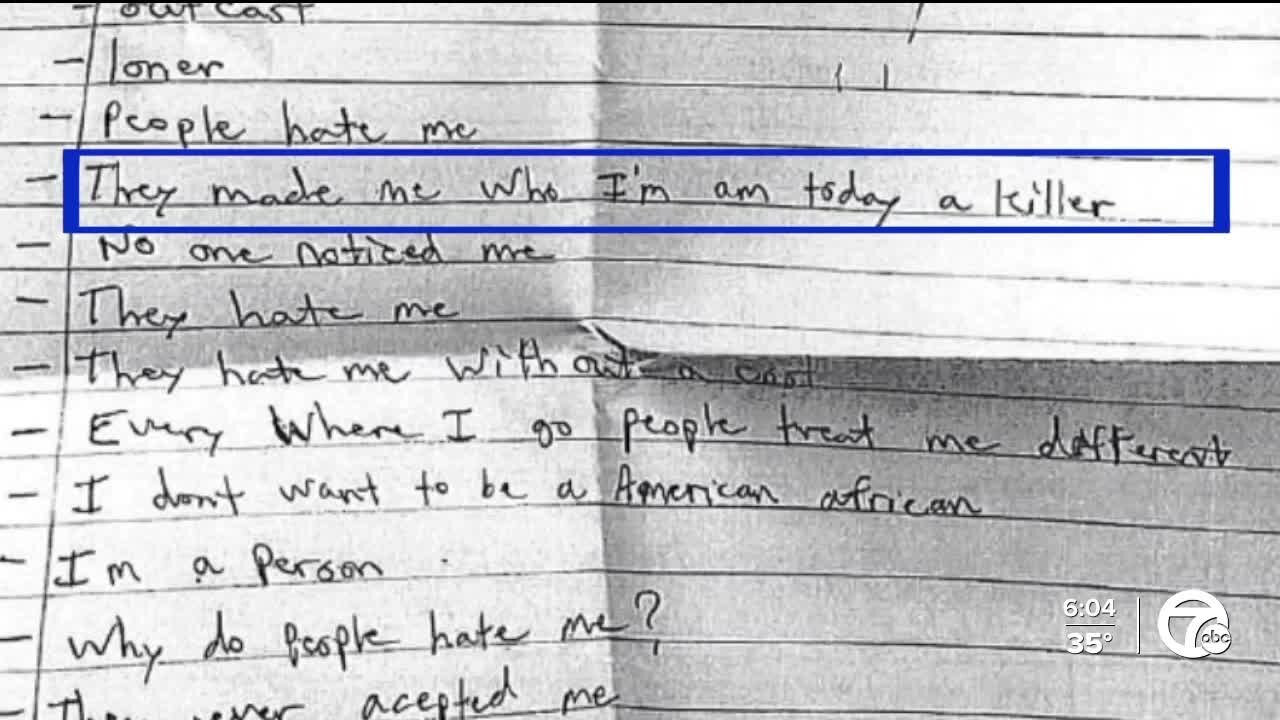 - outcast
- loner
- People hate me
- They made me who I'm am today a killer
- No one noticed me
- They hate me
- They hate me without a
- Every Where I go people treat me different
- I dont want to be a American african
- Im a Person
- Why do people hate me?
- They never acepted me
6:04
35°
7 abc